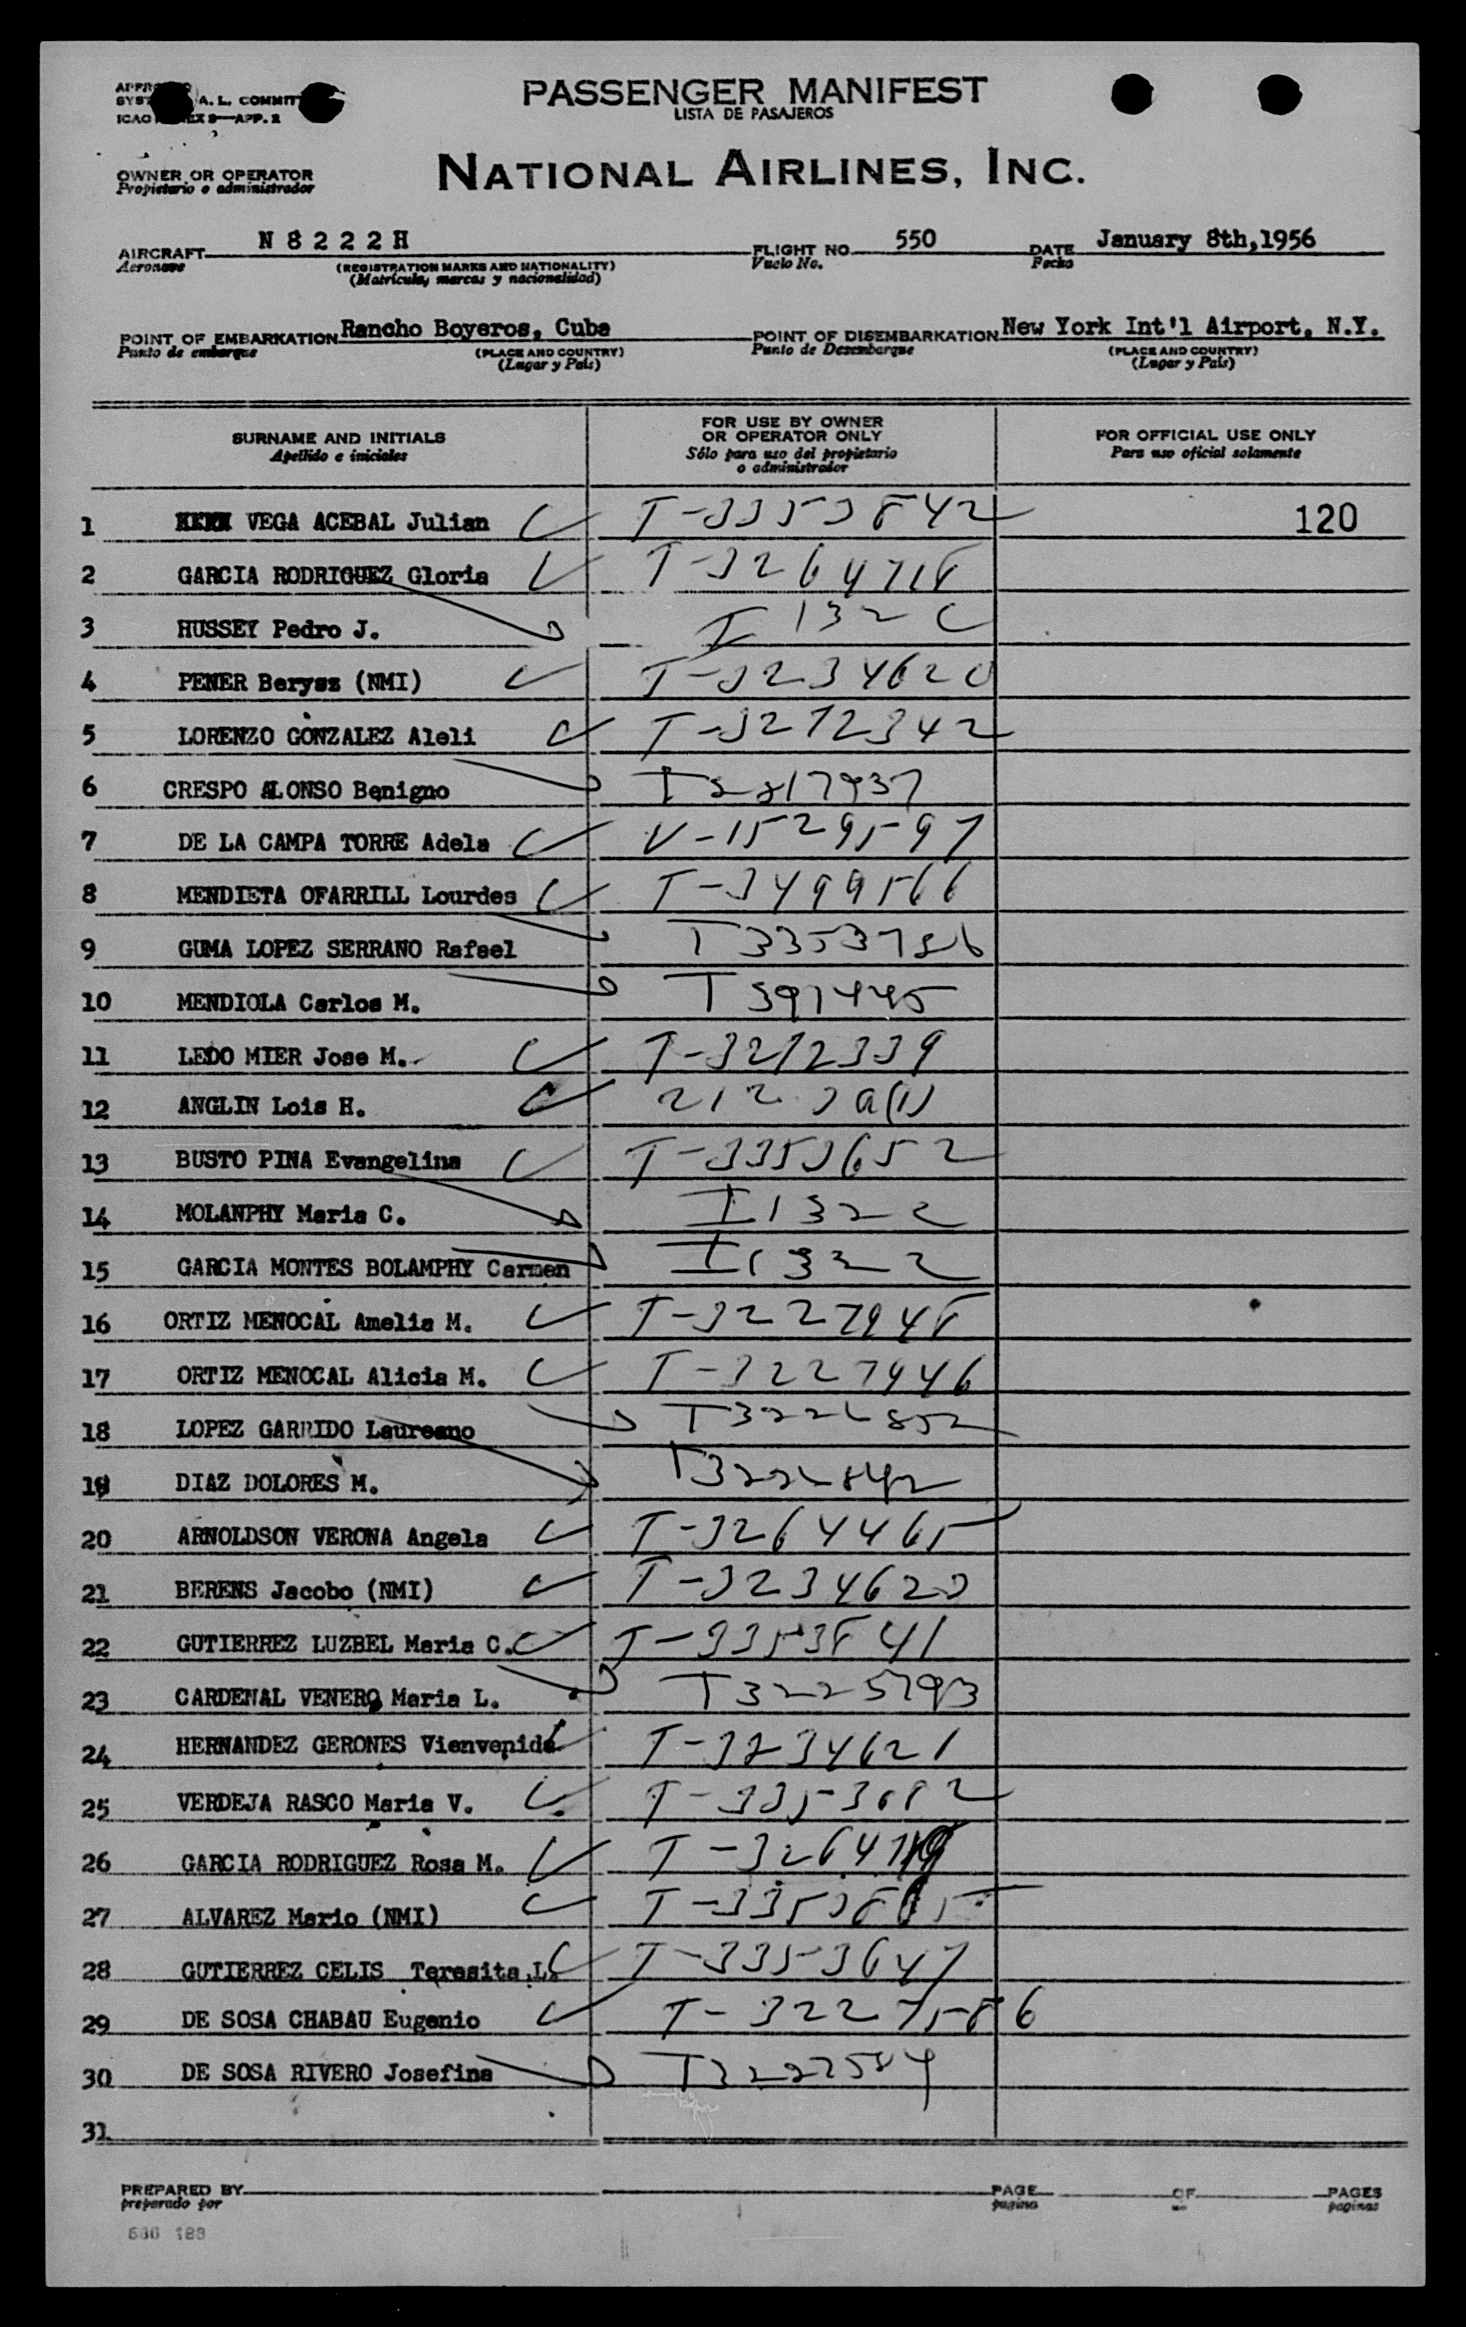 PASSENGER MANIFEST
LISTA DE PASAJEROS
A. L. COMMIT
ICAO 9—APP. 2
OWNER OR OPERATOR
Propietario o administrador
NATIONAL AIRLINES, INC.
AIRCRAFT N 8 2 2 2 H FLIGHT NO. 550 DATE January 8th,1956
Aeronave (REGISTRATION MARKS AND NATIONALITY) Vuelo No. Fecha
(Matricula, marcas y nacionalidad)
POINT OF EMBARKATION Rancho Boyeros, Cuba POINT OF DISEMBARKATION New York Int'l Airport, N.Y.
Punto de embarque (PLACE AND COUNTRY) Punto de Desembarque (PLACE AND COUNTRY)
(Lugar y País) (Lugar y País)
SURNAME AND INITIALS
Apellido e iniciales
FOR USE BY OWNER
OR OPERATOR ONLY
Sólo para uso del propietario
o administrador
FOR OFFICIAL USE ONLY
Para uso oficial solamente
1 VEGA ACEBAL Julian T-3353842 120
2 GARCIA RODRIGUEZ Gloria T-3264718
3 HUSSEY Pedro J. I 132 C
4 PENER Berysz (NMI) T-3234620
5 LORENZO GONZALEZ Aleli T-3272342
6 CRESPO ALONSO Benigno
7 DE LA CAMPA TORRE Adela V-1529597
8 MENDIETA OFARRILL Lourdes T-3499566
9 GUMA LOPEZ SERRANO Rafael T 3353786
10 MENDIOLA Carlos M. T 3971445
11 LEDO MIER Jose M. T-3272339
12 ANGLIN Lois H. 212.3a(1)
13 BUSTO PINA Evangelina T-3353652
14 MOLANPHY Maria C. I 1322
15 GARCIA MONTES BOLAMPHY Carmen I 1322
16 ORTIZ MENOCAL Amelia M. T-3227948
17 ORTIZ MENOCAL Alicia M. T-3227946
18 LOPEZ GARRIDO Laureano T3226852
19 DIAZ DOLORES M. T3226842
20 ARNOLDSON VERONA Angela T-3264465
21 BERENS Jacobo (NMI) T-3234623
22 GUTIERREZ LUZBEL Maria C. T-3353841
23 CARDENAL VENERO Maria L. T3225793
24 HERNANDEZ GERONES Vienvenida T-3234621
25 VERDEJA RASCO Maria V. T-3353682
26 GARCIA RODRIGUEZ Rosa M. T-3264719
27 ALVAREZ Mario (NMI)
28 GUTIERREZ CELIS Teresita L. T-3353647
29 DE SOSA CHABAU Eugenio T-3227586
30 DE SOSA RIVERO Josefina T3227584
31
PREPARED BY PAGE OF PAGES
preparado por pagina paginas